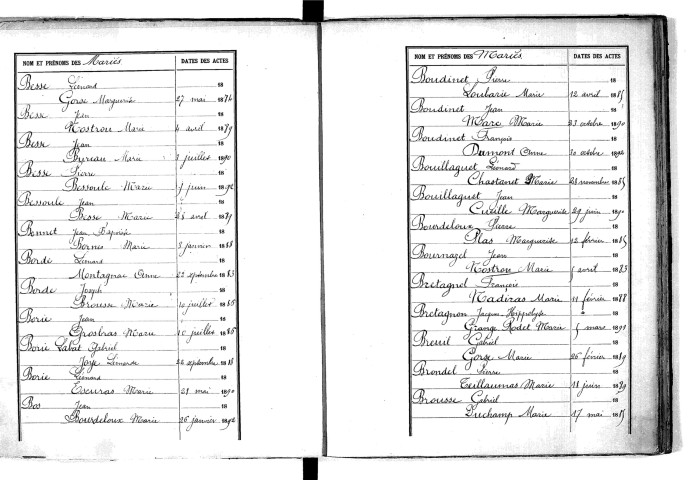 NOM ET PRÉNOMS DES Mariés DATES DES ACTES
Besse Léonard 18
Gorse Marguerite 27 mai 1884
Besse Jean 18
Nostrou Marie 4 avril 1889
Besse Jean 18
Marie juillet 1890
Besse Pierre 18
Bessoule Marie juin 1892
Bessoule Jean 18
Besse Marie 28 avril 1889
Bennet Jean Baptiste 18
Bornes Marie 8 janvier 1888
Borde Léonard 18
Montagnac Anne 22 septembre 1883
Borde Joseph 18
Brousse Marie 10 juillet 1886
Borie Jean 18
Grosbras Marie 10 juillet 1886
Borie Labat Gabriel 18
Joye 26 septembre 18
Borie Léonard 18
Marie 21 mai 1890
Bos Jean 18
Bourdeloux Marie 26 janvier 1892
NOM ET PRÉNOMS DES Mariés DATES DES ACTES
Boudinet Pierre 18
Loubarie Marie 12 avril 1885
Boudinet Jean 18
Marc Marie 23 octobre 1890
Boudinet François 18
Dumont Anne 30 octobre 1892
Bouillaguet Léonard 18
Chastanet Marie 28 novembre 1885
Bouillaguet Jean 18
Cueille Marguerite 29 juin 1890
Bourdeloux Pierre 18
Plas Marguerite 12 février 1885
Bournazel Jean 18
Nostrou Marie 5 avril 1883
Bretagnol François 18
Nadiras Marie 11 février 1888
Bretagnon Jacques Hippolyte 18
Grange Rodet Marie 5 mars 1891
Breuil Gabriel 18
Gorse Marie 26 février 1889
Brondel Pierre 18
Teillaumas Marie 11 juin 1889
Brousse Gabriel 18
Duchamp Marie 17 mai 1885